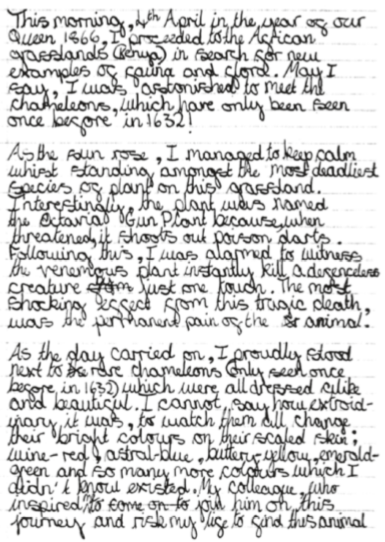 This morning, 4th April in the year of our
Queen 1866, I proceeded to the African
grasslands (Kenya) in search for new
examples of fauna and flora. May I
say, I was astonished to meet the
chameleons, which have only been seen
once before in 1632!
As the sun rose, I managed to keep calm
whilst standing amongst the most deadliest
species of plant on this grassland.
Interestingly, the plant was named
the Octarial Gun Plant because, when
threatened, it shoots out poison darts.
Following this, I was alarmed to witness
the venemous plant instantly kill a defenceless
creature just one touch. The most
shocking effect from this tragic death,
was the permanent pain of the animal.
As the day carried on, I proudly stood
next to rare chameleons (only seen once
before in 1632) which were all dressed
and beautiful. I cannot, say how extroid-
inary it was, to watch them all change
their bright colours on their scaled skin;
wine-red, astral-blue, buttery-yellow, emerald-
green and so many more colours which I
didn't know existed. My colleague, who
inspired to join him on this
journey and risk my life to find this animal